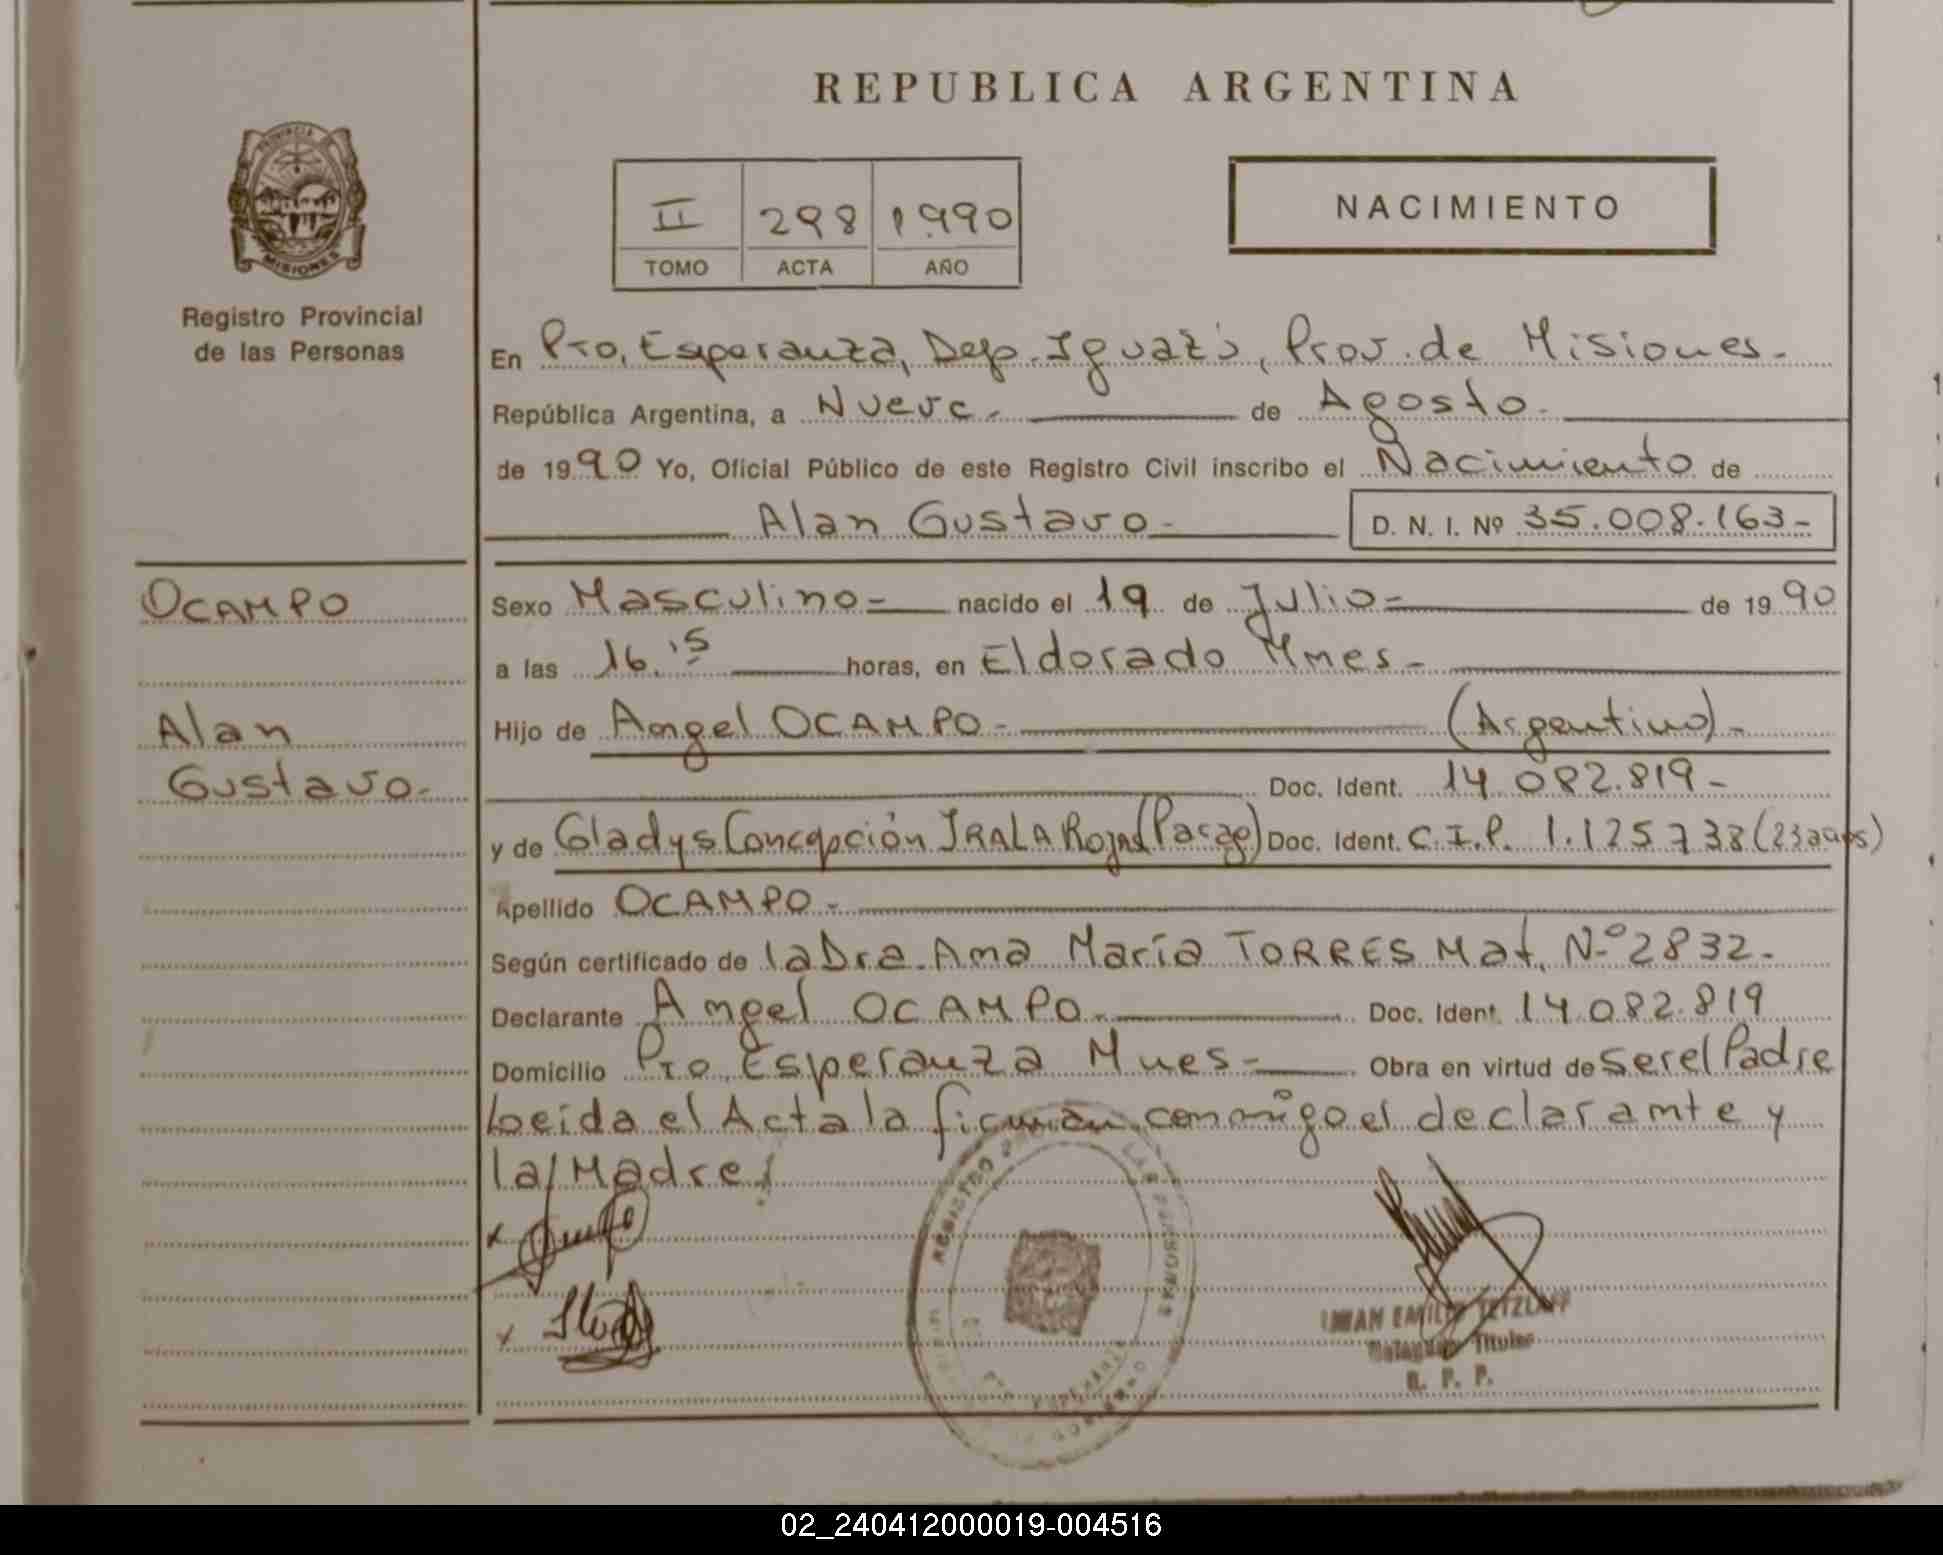 REPUBLICA ARGENTINA
PROVINCIA
MISIONES
Registro Provincial
de las Personas
II 298 1990
TOMO ACTA AÑO
NACIMIENTO
En Pto. Esperanza, Dep. Iguazú, Prov. de Misiones.
República Argentina, a Nueve.- de Agosto.
de 1990 Yo, Oficial Público de este Registro Civil inscribo el Nacimiento de
Alan Gustavo- D. N. I. Nº 35.008.163-
OCAMPO
Alan
Gustavo-
Sexo Masculino- nacido el 19 de Julio- de 1990
a las 16.15 horas, en Eldorado Mnes-
Hijo de Angel OCAMPO- (Argentino)-
Doc. Ident. 14.082.819-
y de Gladys Concepción IRALA Rojas (Parag) Doc. Ident. C.I.P. 1.125.738 (23 años)
Apellido OCAMPO-
Según certificado de la Dra. Ana María TORRES Mat. Nº 2832-
Declarante Angel OCAMPO- Doc. Ident. 14.082.819
Domicilio Pto. Esperanza Mnes- Obra en virtud de ser el Padre
Leida el Acta la firman conmigo el declarante y
la Madre
REGISTRO LAS PERSONAS
EMILI TETZLAFF
Titular
R. P. P.
02_240412000019-004516